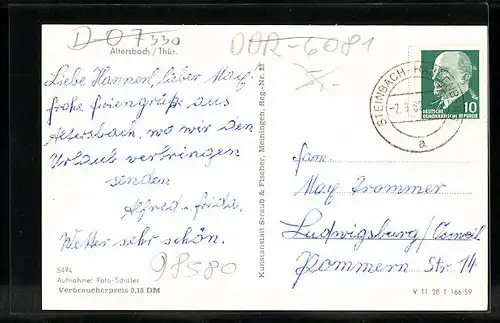 D-07330
Altersbach / Thür.
DDR-6081
Liebe Hannerl, lieber Max,
frohe Feriengrüße aus
Altersbach, wo wir den
Urlaub verbringen
senden
Alfred + Frida.
Wetter sehr schön.
98580
5474
Aufnahme: Foto-Schüler
Verbraucherpreis 0,15 DM
Kunstanstalt Straub & Fischer, Meiningen, Reg.-Nr.
STEINBACH-
a
10
DEUTSCHE
DEMOKRATISCHE REPUBLIK
Fam.
Max Trommer
Ludwigsburg/
Pommern Str. 14
V 11 28 F 166/59